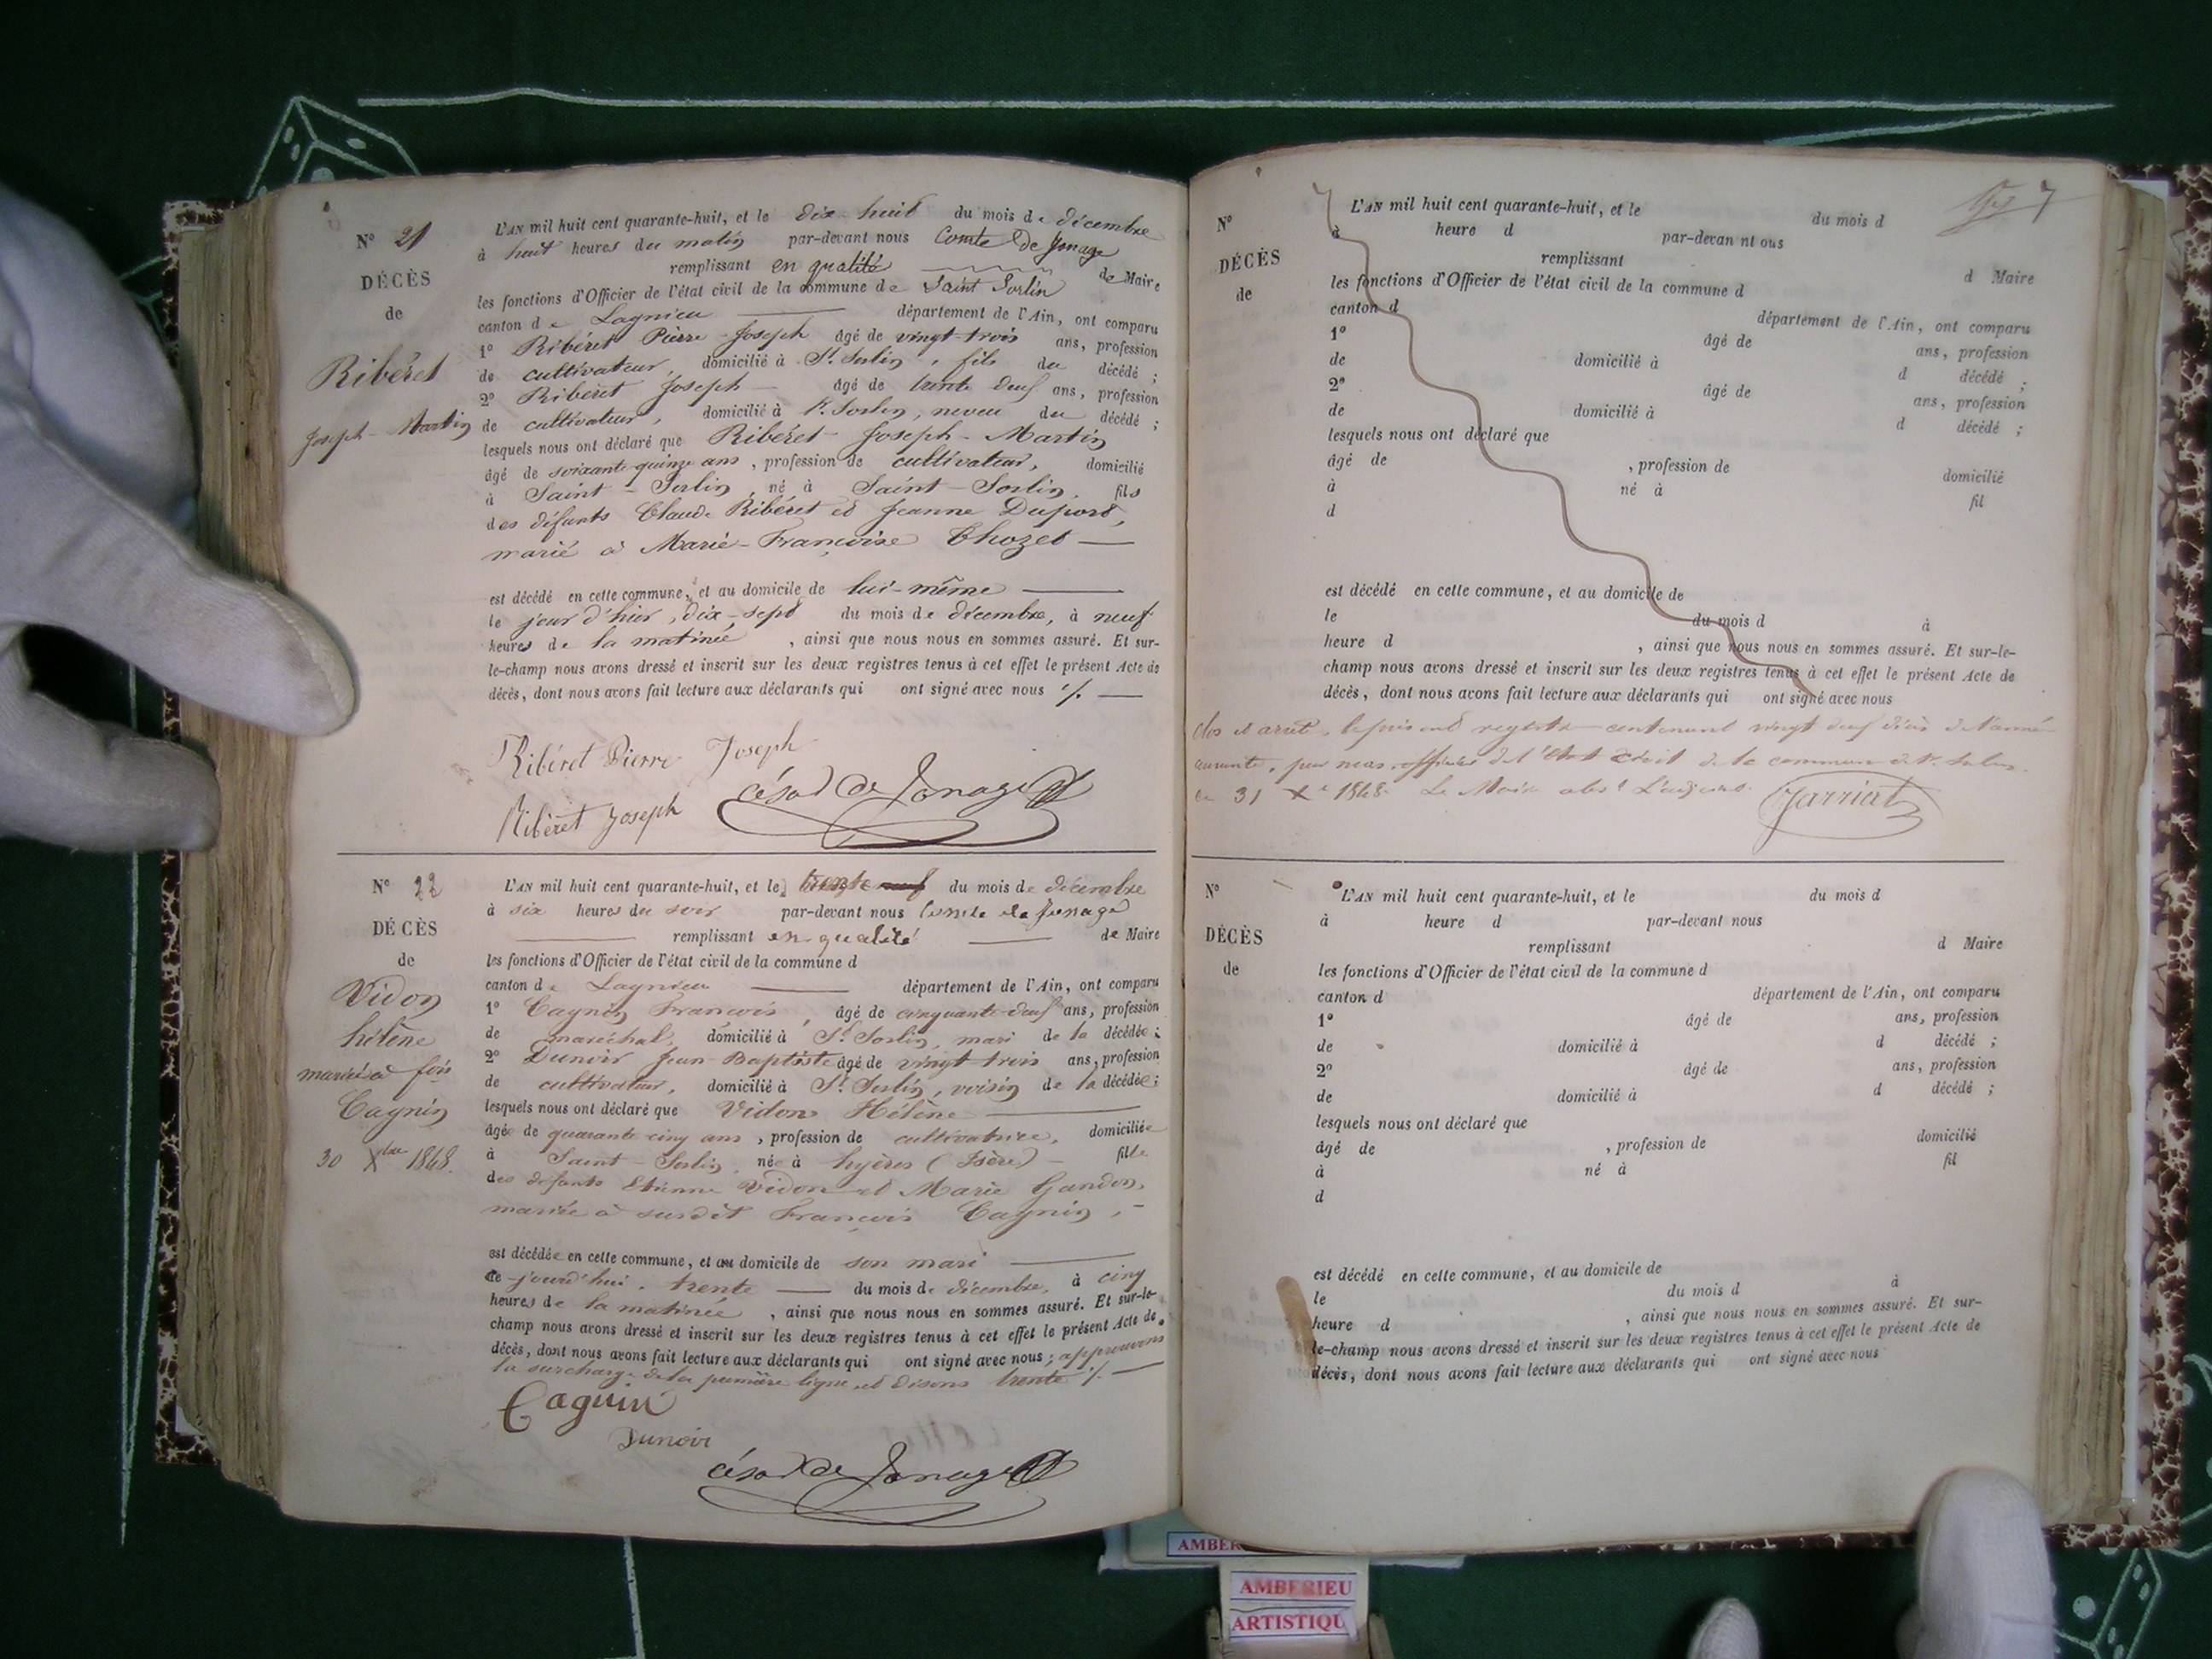 N° 21
DÉCÈS
de
Ribéret
Joseph-Martin
L'AN mil huit cent quarante-huit, et le dix-huit du mois de décembre
à huit heures du matin par-devant nous Comte de Jonage
remplissant en qualité de Maire
les fonctions d'Officier de l'état civil de la commune de Saint Sorlin
canton de Lagnieu département de l'Ain, ont comparu
1° Ribéret Pierre-Joseph âgé de vingt-trois ans, profession
de cultivateur, domicilié à St. Sorlin, fils du décédé ;
2° Ribéret Joseph âgé de trente deux ans, profession
de cultivateur, domicilié à St. Sorlin, neveu du décédé ;
lesquels nous ont déclaré que Ribéret Joseph-Martin
âgé de soixante-quinze ans, profession de cultivateur, domicilié
à Saint-Sorlin, né à Saint-Sorlin, fils
des défunts Claude Ribéret et Jeanne Duport,
marié à Marie-Françoise Chozet
est décédé en cette commune, et au domicile de lui-même
le jour d'hier, dix-sept du mois de décembre, à neuf
heures de la matinée, ainsi que nous nous en sommes assuré. Et sur-
le-champ nous avons dressé et inscrit sur les deux registres tenus à cet effet le présent Acte de
décès, dont nous avons fait lecture aux déclarants qui ont signé avec nous ./.
Ribéret Pierre Joseph
Ribéret Joseph
césar de Jonage
N° 22
DÉCÈS
de
Vidon
hélène
mariée à fois
Cagnin
30 Xbre 1848.
L'AN mil huit cent quarante-huit, et le trente du mois de décembre
à six heures du soir par-devant nous Comte de Jonage
remplissant en qualité de Maire
les fonctions d'Officier de l'état civil de la commune d
canton de Lagnieu département de l'Ain, ont comparu
1° Cagnin François, âgé de cinquante-deux ans, profession
de maréchal, domicilié à St. Sorlin, mari de la décédée ;
2° Dunoir Jean-Baptiste âgé de vingt-trois ans, profession
de cultivateur, domicilié à St. Sorlin, voisin de la décédée ;
lesquels nous ont déclaré que Vidon Hélène
âgée de quarante cinq ans, profession de cultivatrice, domiciliée
à Saint-Sorlin, née à hyères (Isère) fille
des défunts Etienne Vidon et Marie Gandon,
mariée à susdit François Cagnin,
est décédée en cette commune, et au domicile de son mari
ce-jourd'hui, trente du mois de décembre, à cinq
heures de la matinée, ainsi que nous nous en sommes assuré. Et sur-le-
champ nous avons dressé et inscrit sur les deux registres tenus à cet effet le présent Acte de
décès, dont nous avons fait lecture aux déclarants qui ont signé avec nous ; approuvons
la surcharge de la première ligne, et disons trente ./.
Cagnin
Dunoir
césar de Jonage
7
N°
DÉCÈS
de
L'AN mil huit cent quarante-huit, et le du mois d
à heure d par-devan nt ous
remplissant d Maire
les fonctions d'Officier de l'état civil de la commune d
canton d département de l'Ain, ont comparu
1° âgé de ans, profession
de domicilié à d décédé ;
2° âgé de ans, profession
de domicilié à d décédé ;
lesquels nous ont déclaré que
âgé de , profession de domicilié
à né à fil
d
est décédé en cette commune, et au domicile de
le du mois d à
heure d , ainsi que nous nous en sommes assuré. Et sur-le-
champ nous avons dressé et inscrit sur les deux registres tenus à cet effet le présent Acte de
décès, dont nous avons fait lecture aux déclarants qui ont signé avec nous
clos et arrêté, le présent registre contenant vingt deux décès de l'année
courante, par nous officier de l'Etat Civil de la commune de St. Sorlin
le 31 Xe 1848. Le Maire abst L'adjoint
Jarriat
N°
DÉCÈS
de
L'AN mil huit cent quarante-huit, et le du mois d
à heure d par-devant nous
remplissant d Maire
les fonctions d'Officier de l'état civil de la commune d
canton d département de l'Ain, ont comparu
1° âgé de ans, profession
de domicilié à d décédé ;
2° âgé de ans, profession
de domicilié à d décédé ;
lesquels nous ont déclaré que
âgé de , profession de domicilié
à né à fil
d
est décédé en cette commune, et au domicile de
le du mois d à
heure d , ainsi que nous nous en sommes assuré. Et sur-
le-champ nous avons dressé et inscrit sur les deux registres tenus à cet effet le présent Acte de
décès, dont nous avons fait lecture aux déclarants qui ont signé avec nous
AMBER
AMBERIEU
ARTISTIQU